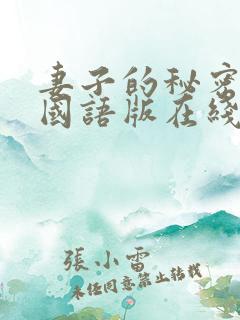 妻子的秘密
國語版在綫
張小雷
未經同意禁止轉載